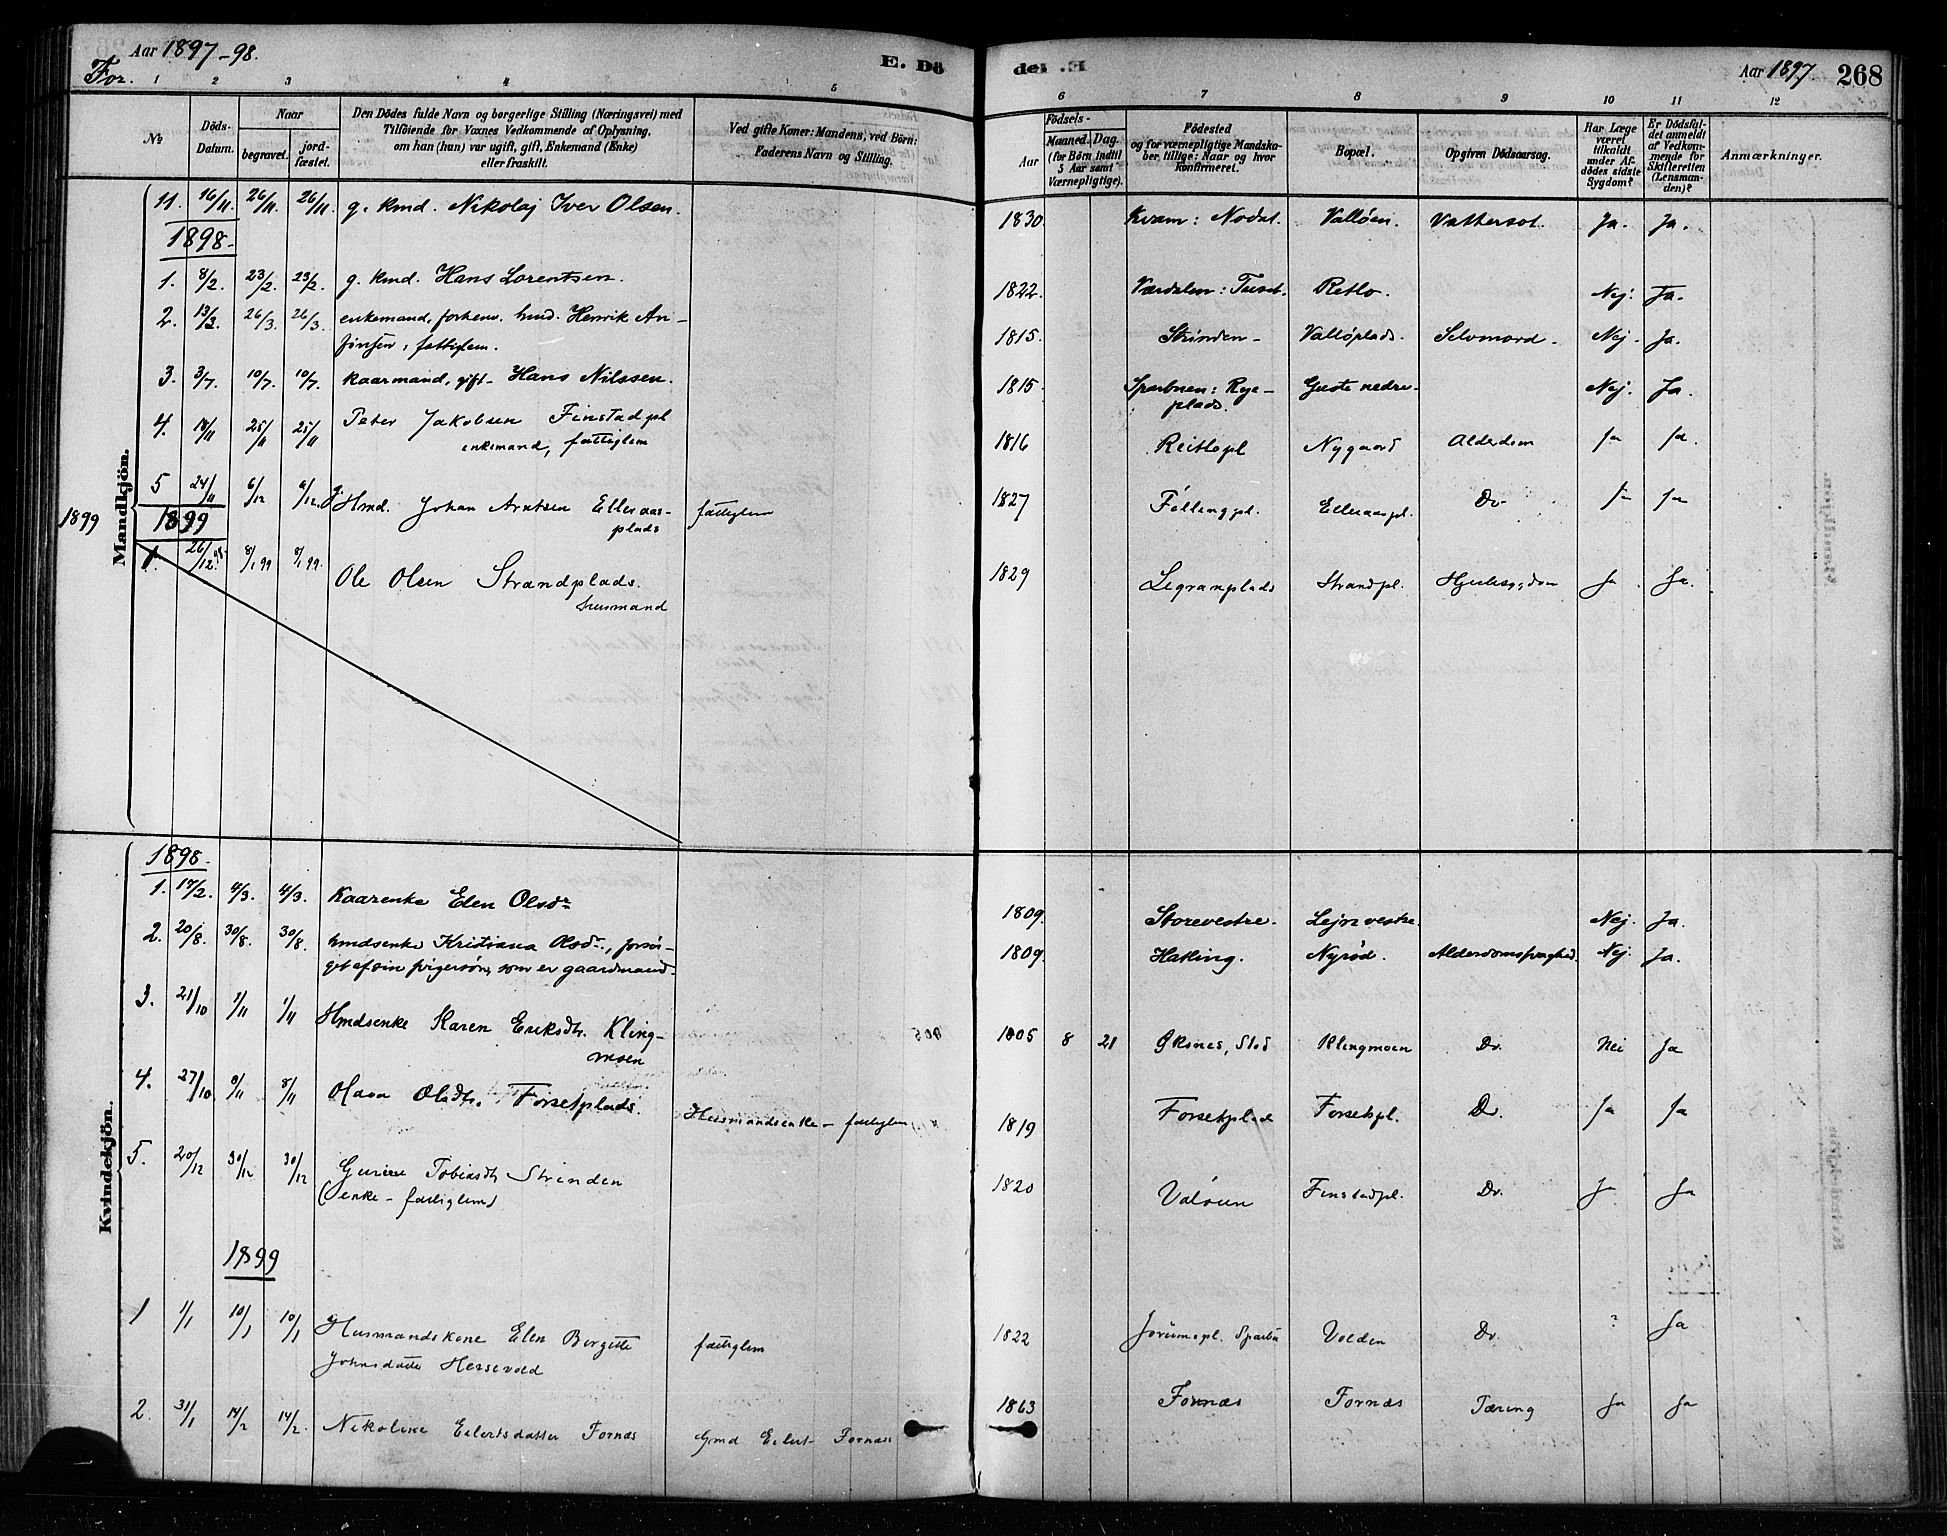 Aar 1897-98.
For.
E. Dö
de. E.
Aar 1897.
268
1 2 3 4 5 6
6 7 8 9 10 11 12
No
Döds-Datum.
Naar
begravet.
jord-fæstet.
Den Dödes fulde Navn og borgerlige Stilling (Næringsvei) med
Tilföiende for Voxnes Vedkommende af Oplysning,
om han (hun) var ugift, gift, Enkemand (Enke)
eller fraskilt.
Ved gifte Koner: Mandens, ved Börn:
Faderens Navn og Stilling.
Födsels-
Aar
Maaned. Dag.
(for Börn indtil
5 Aar samt
Værnepligtige).
Födested
og for værnepligtige Mandska-
ber, tillige: Naar og hvor
konfirmeret.
Bopæl.
Opgiven Dödsaarsag.
Har Læge
været
tilkaldt
under Af-
dödes sidste
Sygdom?
Er Dödsfal-
det anmeldt
af Vedkom-
mende for
Skifteretten
(Lensman-
den)?
Anmærkninger.
Mandkjön.
11. 16/11 26/11 26/11 g. kmd. Nikolaj Iver Olsen. 1830 Kvam: Nodal. Valløen. Vattersot. Ja. Ja.
1898.
1. 8/2. 23/2. 23/2. g. kmd. Hans Lorentsen. 1822. Værdalen: Retlo. Nej. Ja.
2. 13/3. 26/3. 26/3. enkemand, forhenv. hmd. Henrik An-
, fattiglem. 1815. Strinden Valløplads. Selvmord. Nej. Ja.
3. 3/7. 10/7. 10/7. kaarmand, gift Hans Nilssen. 1815. Sparbuen: Rye-
plads. nedre Nej. Ja.
4. 25/11 25/11 Peter Jakobsen Finstadpl
enkemand, fattiglem 1816 Reitlopl Nygaard Alderdom Ja Ja.
5 24/11 6/12 6/12 Hmd. Johan Arntsen Elleraas-
plads fattiglem 1827 Føllingpl. Do Ja Ja
1899
1899
1. 26/12 98. 8/1 99 8/1 99. Ole Olsen Strandplads.
husmand 1829 Legranplads Strandpl. Ja Ja.
Kvindekjön.
1898.
1. 17/2. 4/3. 4/3. Kaarenke Elen Olsdr 1809. Storevestre. vestre. Nej. Ja.
2. 20/8. 30/8. 30/8. hmdsenke Kristiana Olsdr., forsør-
get af sin som er gaardmand. 1809. Hatling. Nyrød. Alderdomssvaghed. Nej. Ja.
3. 21/10 1/11 1/11 Hmdsenke Karen Eriksdtr. Kling-
moen 1805 8 21 Øksnes, Stod Klingmoen Do. Nei Ja
4. 27/10 8/11 8/11 Olava Olsdtr. Forsetplads. Husmandsenke - fattiglem 1819 Forsetplads Forsetpl. Do. Ja Ja
5. 20/12 30/12 30/12 Tobiasdtr Strinden
(enke - fattiglem) 1820 Valøen Finstadpl. Do. Ja Ja
1899
1 1/1 10/1 10/1 Husmandskone Elen Birgitte
Johnsdatter fattiglem 1822 Sparbu Volden Do. ? Ja
2. 31/1 14/2 14/2. Nikoline Eilertsdatter Fornæs Gmd Eilert Fornæs 1863 Fornæs Fornæs Tæring Ja Ja